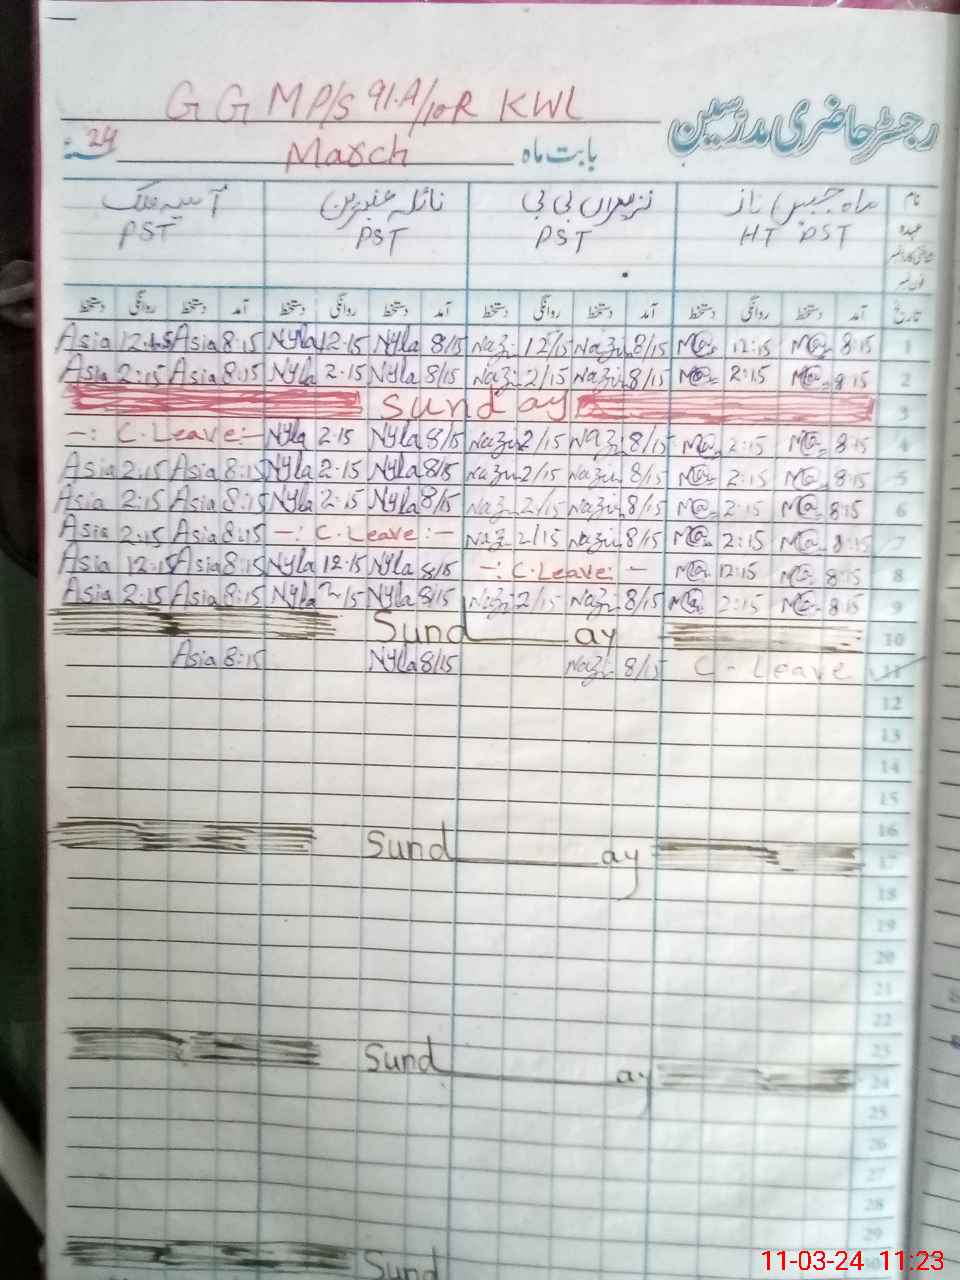 GGMP/S 91.A/10R KWL
رجسٹر حاضری مدرسین
24 March بابت ماہ
نام ماہ جبیں ناز نذیراں بی بی نائلہ عنبرین آسیہ ملک
عہدہ HT PST PST PST PST
تاریخ آمد دستخط روانگی دستخط آمد دستخط روانگی دستخط آمد دستخط روانگی دستخط آمد دستخط روانگی دستخط
Asia 12.15 Asia 8:15 Nyla 12.15 Nyla 8/15 Nazi 12/15 Nazi 8/15 12:15 8:15 1
Asia 2:15 Asia 8:15 Nyla 2.15 Nyla 8/15 Nazi 2/15 Nazi 8/15 2:15 8:15 2
Sunday 3
-: C.Leave:- Nyla 2.15 Nyla 8/15 Nazi 2/15 Nazi 8/15 2:15 8:15 4
Asia 2:15 Asia 8:15 Nyla 2.15 Nyla 8/15 Nazi 2/15 Nazi 8/15 2:15 8:15 5
Asia 2:15 Asia 8:15 Nyla 2:15 Nyla 8/15 Nazi 2/15 Nazi 8/15 2:15 8:15 6
Asia 2:15 Asia 8:15 -: C.Leave:- Nazi 2/15 Nazi 8/15 2:15 8:15 7
Asia 12:15 Asia 8:15 Nyla 12.15 Nyla 8/15 -: C.Leave:- 12:15 8:15 8
Asia 2:15 Asia 8:15 Nyla 2.15 Nyla 8/15 Nazi 2/15 Nazi 8/15 2:15 8:15 9
Sund ay 10
Asia 8:15 Nyla 8/15 Nazi 8/15 C-Leave 11
12
13
14
15
16
Sund ay 17
18
19
20
21
22
23
Sund ay 24
25
26
27
28
29
Sund
11-03-24 11:23